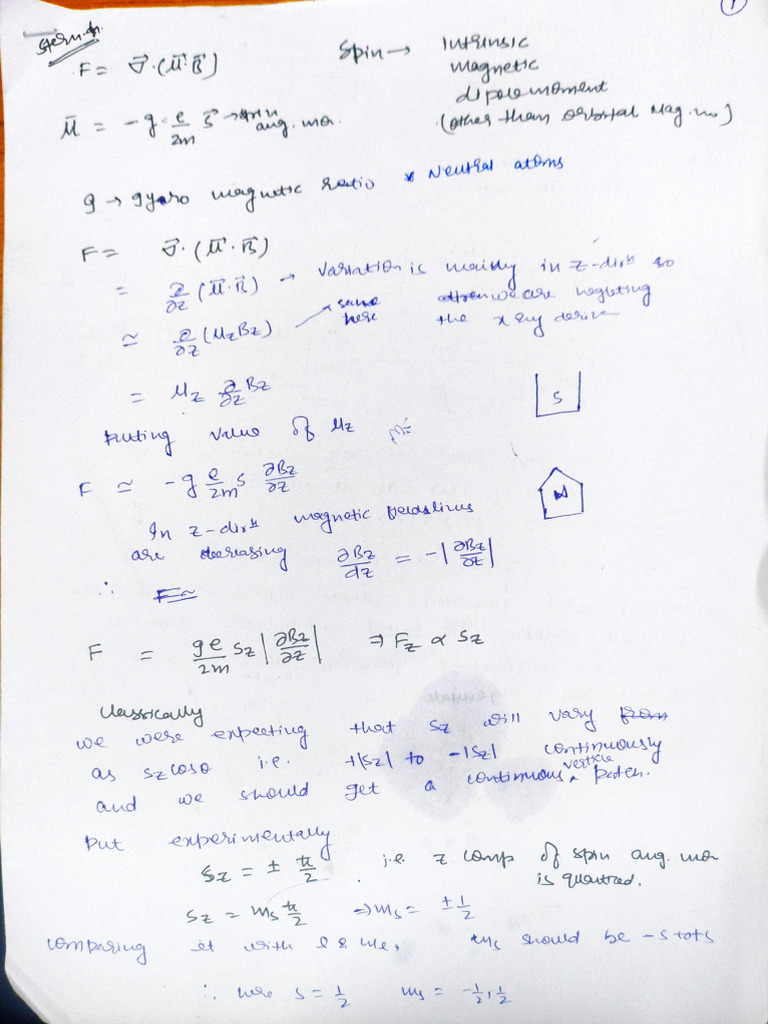 1
Stern
F = ∇⃗·(μ⃗·B⃗)
Spin → Intrinsic
magnetic
dipole moment
(other than orbital Mag. mo)
μ⃗ = -g e/2m S⃗ → spin ang. mo.
g → gyro magnetic ratio * Neutral atoms
F = ∇⃗·(μ⃗·B⃗)
= ∂/∂z (μ⃗·B⃗) → Variation is mainly in z-dirⁿ so
we are neglecting
the x & y deriv
≃ ∂/∂z (μzBz) → same here
= μz ∂/∂z Bz
S
Putting value of μz
F ≃ -g e/2m s ∂Bz/∂z
N
In z-dirⁿ magnetic fieldslines
are decreasing ∂Bz/dz = -|∂Bz/∂z|
∴ F≃
F = ge/2m Sz |∂Bz/∂z| ⇒ Fz ∝ Sz
Classically
we were expecting that Sz will vary from
as Sz cosθ i.e. +|Sz| to -|Sz| continuously
and we should get a continuous verticle patch.
But experimentally
Sz = ± ħ/2 . i.e z comp of spin ang. mo
is quantized.
Sz = ms ħ/2 ⇒ ms = ± 1/2
Comparing it with l & ml, ms should be -s to s
∴ here s = 1/2 ms = -1/2, 1/2